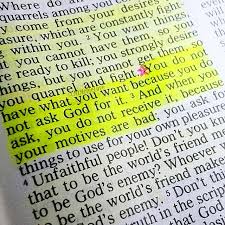 Where do
come from your desires
asure, which are constantly fight-
within you. 2 You want things,
you cannot have them, so
are ready to kill; you strongly desire
things, but you cannot get them, so
you quarrel and fight. You do no
have what you want because you do
not ask God for it. 3 And when you
ask, you do not receive it, because
your motives are bad; you ask
things to use for your own pleasure
4 Unfaithful people! Don't
that to be the world's friend me
to be God's enemy? Whoever
to be the world's friend m
God's enemy. 5 Don't thin
truth in the scrip